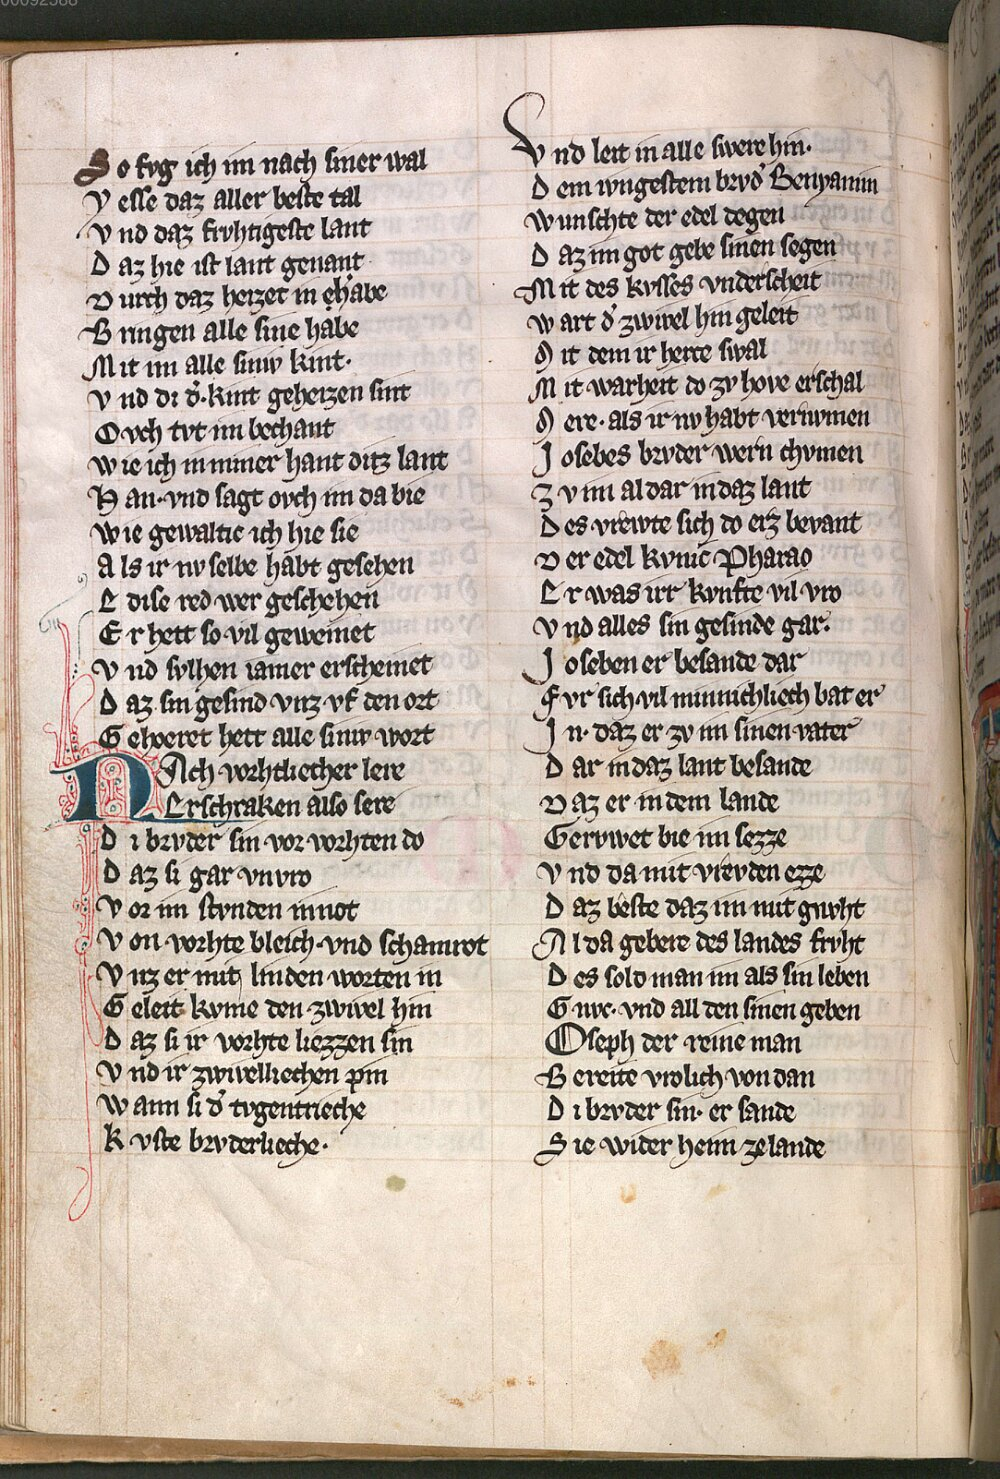 00092588
So fvg ich im nach siner wal
Y esse daz aller beste tal
V nd daz frvhtigeste lant
D az hie ist lant genant
D urch daz heizet in e habe
B ringen alle sine habe
Mit im alle siniv kint·
V nd di d'·kint geheizen sint
Ovch tvt im bechant
Wie ich in miner hant ditz lant
H an·vnd sagt ovch im da bie
Wie gewaltic ich hie sie
A ls ir nv selbe habt gesehen
E dise red wer geschehen
E r hett so vil geweinet
V nd svlhen iamer erscheinet
D az sin gesind vnz vf den ort
G ehoeret hett alle siniv wort
NAch vorhtliecher lere
Erschraken also sere
D i brvder sin vor vorhten do
D az si gar vnvro
V or im stvnden in not
V on vorhte bleich·vnd schamrot
V nz er mit linden worten in
G eleit kvme den·zwivel hin
D az si ir vorhte liezzen sin
V nd ir zwivelliechen pin
W ann si d' tvgentrieche
K vste brvderlieche·
V nd leit in alle swere hin·
D em ivngestem brvd' Benyamin
W unschte der edel degen
D az im got gebe sinen segen
Mit des kvsses vnderscheit
W art d' zwivel hin geleit
M it dem ir herce swal
M it warheit do zv hove erschal
M ere·als ir nv habt vernvmen
J osebes brvder wern chvmen
Z v im aldar in daz lant
D es vrewte sich do erz bevant
D er edel kvnic Pharao
E r was irr kvnfte vil vro
V nd alles sin gesinde gar·
J oseben er besande dar
F vr sich·vil minnichliech bat er
J n·daz er zv im sinen vater
D ar in daz lant besande
D az er in dem lande
Gervwet bie im sezze
V nd da mit vrevden ezze
D az beste daz im mit gnvht
Al da gebere des landes frvht
D es solo man im als sin leben
G nvc·vnd all den sinen geben
Oseph der reine man
B ereite vrolich von dan
D i brvder sin·er sande
S ie wider heim ze lande